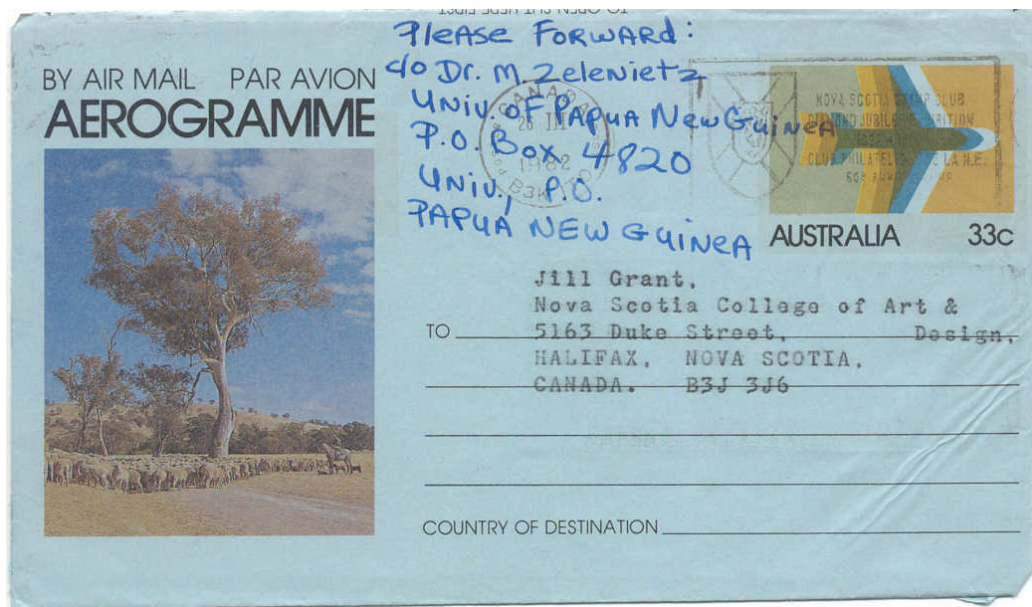 TO OPEN SLIT HERE FIRST
Please Forward:
c/o Dr. M. Zelenietz
Univ. of Papua New Guinea
P.O. Box 4820
Univ., P.O.
PAPUA NEW GUINEA
BY AIR MAIL PAR AVION
AEROGRAMME
CANADA
26 III
1982
B3K
NOVA SCOTIA STAMP CLUB
DIAMOND JUBILEE EXHIBITION
CLUB PHILATELIQUE DE LA N.E.
AUSTRALIA 33c
Jill Grant,
Nova Scotia College of Art &
TO 5163 Duke Street, Design,
HALIFAX, NOVA SCOTIA,
CANADA. B3J 3J6
COUNTRY OF DESTINATION